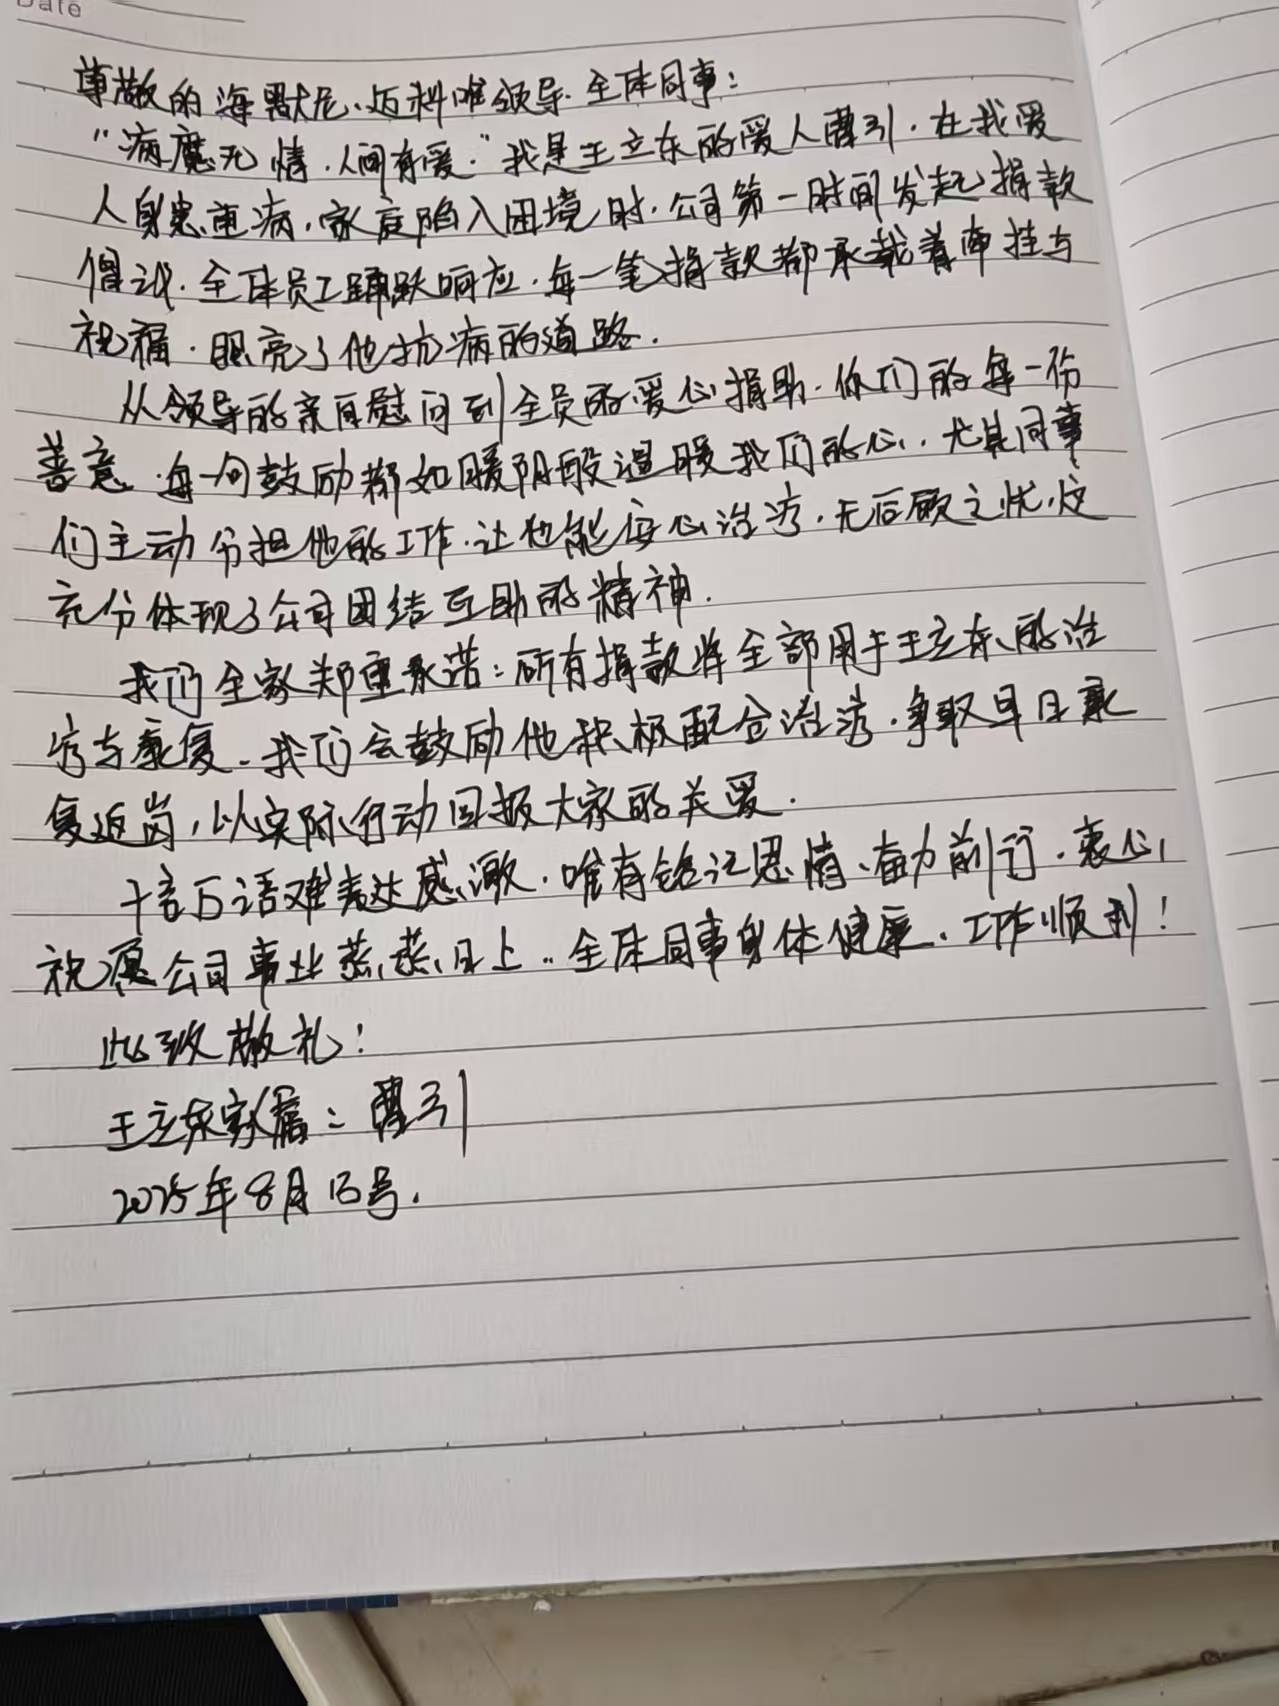 Date
尊敬的海默尼、迈科唯领导、全体同事：
“病魔无情，人间有爱。”我是王立东的爱人曹引，在我爱
人身患重病，家庭陷入困境时，公司第一时间发起捐款
倡议，全体员工踊跃响应，每一笔捐款都承载着牵挂与
祝福，照亮了他抗病的道路。
从领导的亲自慰问到全员的爱心捐助，你们的每一份
善意，每一句鼓励都如暖阳般温暖我们的心，尤其同事
们主动分担他的工作，让他能安心治疗，无后顾之忧，这
充分体现了公司团结互助的精神。
我们全家郑重承诺：所有捐款将全部用于王立东的治
疗与康复。我们会鼓励他积极配合治疗，争取早日康
复返岗，以实际行动回报大家的关爱。
千言万语难表达感激，唯有铭记恩情、奋力前行，衷心
祝愿公司事业蒸蒸日上，全体同事身体健康、工作顺利！
此致敬礼！
王立东家属：曹引
2025年8月13号.